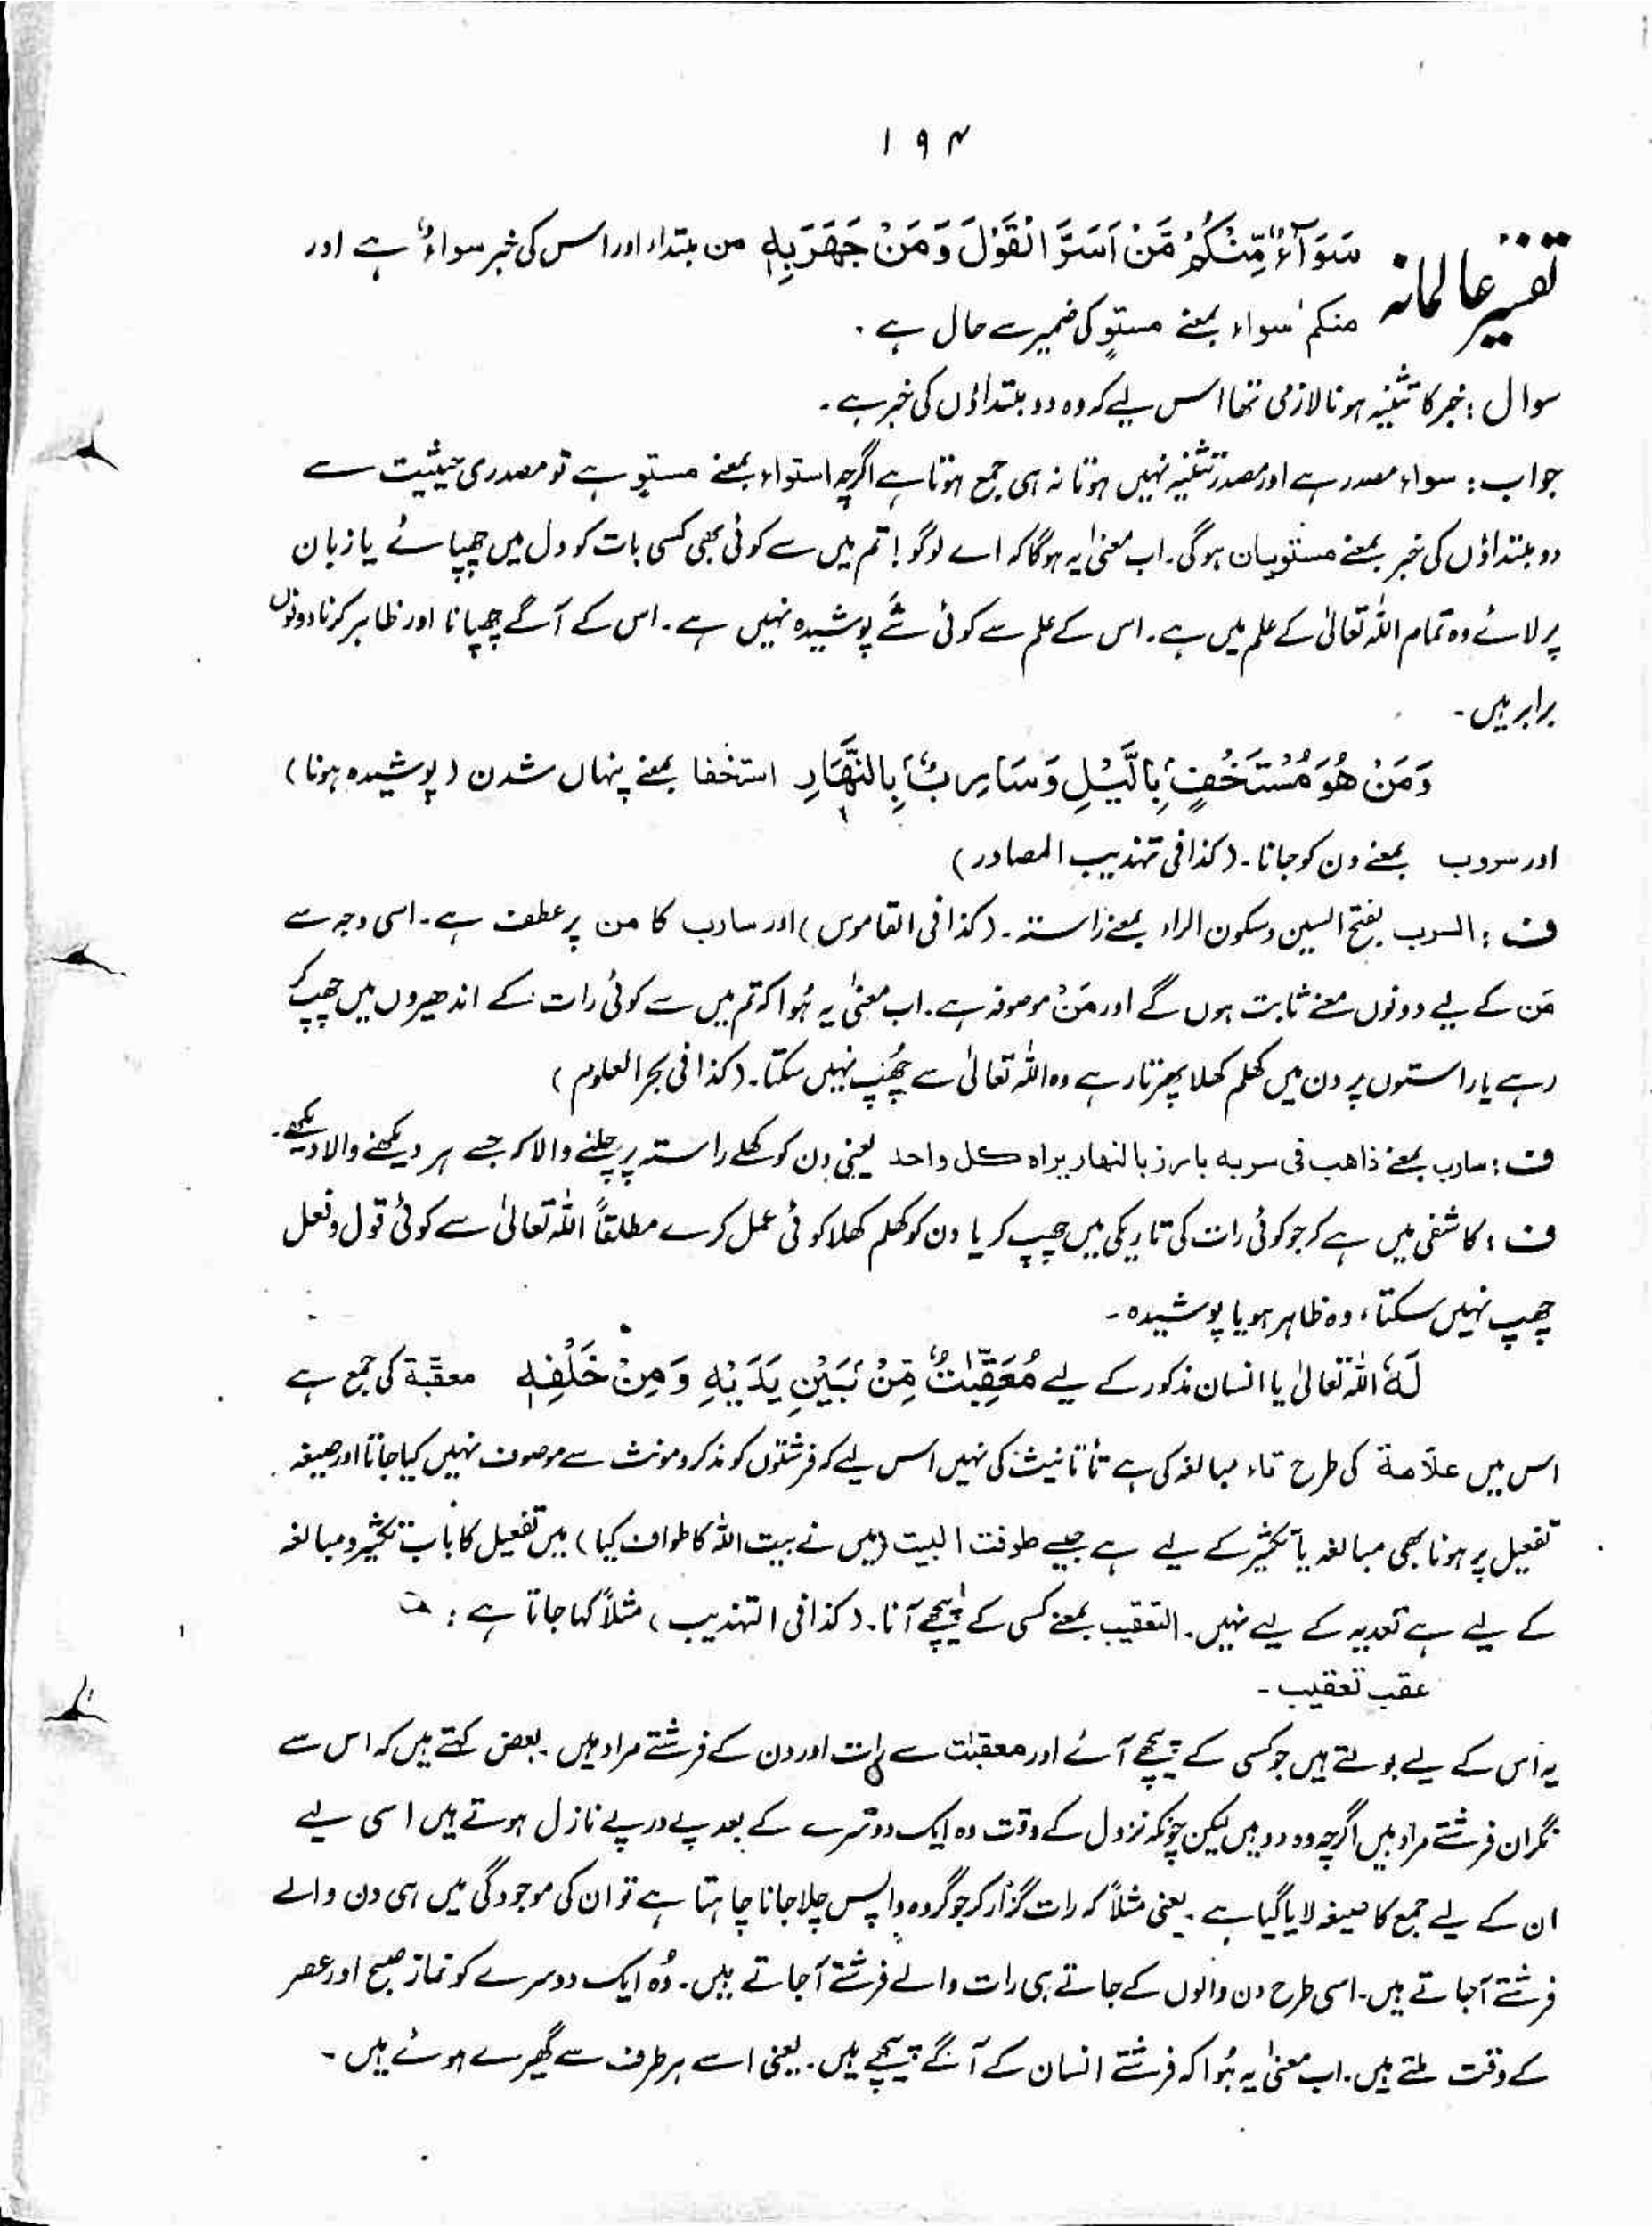 ۱۹۴
تفسیر عالمانہ سَوَآءٌ مِّنْكُمْ مَّنْ اَسَرَّ الْقَوْلَ وَمَنْ جَهَرَ بِهٖ من مبتداء اور اس کی خبر سواءٌ ہے اور
منکم سواء بمعنے مستوٍ کی ضمیر سے حال ہے ۔
سوال : خبر کا تثنیہ ہونا لازمی تھا اس لیے کہ وہ دو مبتداؤں کی خبر ہے ۔
جواب : سواء مصدر ہے اور مصدر تثنیہ نہیں ہوتا نہ ہی جمع ہوتا ہے اگرچہ استواء بمعنے مستوٍ ہے تو مصدری حیثیت سے
دو مبتداؤں کی خبر بمعنے مستویان ہوگی ۔ اب معنیٰ یہ ہوگا کہ اے لوگو ! تم میں سے کوئی بھی کسی بات کو دل میں چھپائے یا زبان
پر لائے وہ تمام اللہ تعالیٰ کے علم میں ہے ۔ اس کے علم سے کوئی شے پوشیدہ نہیں ہے ۔ اس کے آگے چھپانا اور ظاہر کرنا دونوں
برابر ہیں ۔
وَمَنْ هُوَ مُسْتَخْفٍۭ بِالَّيْلِ وَسَارِبٌۢ بِالنَّهَارِ استخفا بمعنے پنہاں شدن ( پوشیدہ ہونا )
اور سروب بمعنے دن کو جانا ۔ ( کذا فی تہذیب المصادر )
ف : السرب بفتح السین وسکون الراء بمعنے راستہ ۔ ( کذا فی القاموس ) اور سارب کا من پر عطف ہے ۔ اسی وجہ سے
مَن کے لیے دونوں معنے ثابت ہوں گے اور مَنْ موصوفہ ہے ۔ اب معنیٰ یہ ہُوا کہ تم میں سے کوئی رات کے اندھیروں میں چھپ کر
رہے یا راستوں پر دن میں کھلم کھلا پھرتا رہے وہ اللہ تعالیٰ سے چُھپ نہیں سکتا ۔ ( کذا فی بحر العلوم )
ف : سارب بمعنے ذاھب فی سربہ بارز بالنھار یراہ کل واحد یعنی دن کو کھلے راستہ پر چلنے والا کہ جسے ہر دیکھنے والا دیکھے ۔
ف : کاشفی میں ہے کہ جو کوئی رات کی تاریکی میں چھپ کر یا دن کو کھلم کھلا کوئی عمل کرے مطلقاً اللہ تعالیٰ سے کوئی قول وفعل
چھپ نہیں سکتا ، وہ ظاہر ہو یا پوشیدہ ۔
لَهٗ اللہ تعالیٰ یا انسان مذکور کے لیے مُعَقِّبٰتٌ مِّنْۢ بَيْنِ يَدَيْهِ وَمِنْ خَلْفِهٖ معقّبة کی جمع ہے
اس میں علّامة کی طرح تاء مبالغہ کی ہے تا تانیث کی نہیں اس لیے کہ فرشتوں کو مذکر ومونث سے موصوف نہیں کیا جاتا اور صیغہ
تفعیل پر ہونا بھی مبالغہ یا تکثیر کے لیے ہے جیسے طوفت البیت ( میں نے بیت اللہ کا طواف کیا ) میں تفعیل کا باب تکثیر ومبالغہ
کے لیے ہے تعدیہ کے لیے نہیں ۔ التعقیب بمعنے کسی کے پیچھے آنا ۔ ( کذا فی التہذیب ) مثلاً کہا جاتا ہے :
عقب تعقیب ۔
یہ اس کے لیے بولتے ہیں جو کسی کے پیچھے آئے اور معقبٰت سے رات اور دن کے فرشتے مراد ہیں ۔ بعض کہتے ہیں کہ اس سے
نگران فرشتے مراد ہیں اگرچہ وہ دو ہیں لیکن چونکہ نزول کے وقت وہ ایک دوسرے کے بعد پے در پے نازل ہوتے ہیں اسی لیے
ان کے لیے جمع کا صیغہ لایا گیا ہے ۔ یعنی مثلاً کہ رات گزار کر جو گروہ واپس چلا جانا چاہتا ہے تو ان کی موجودگی میں ہی دن والے
فرشتے آجاتے ہیں ۔ اسی طرح دن والوں کے جاتے ہی رات والے فرشتے آجاتے ہیں ۔ وُہ ایک دوسرے کو نماز صبح اور عصر
کے وقت ملتے ہیں ۔ اب معنیٰ یہ ہُوا کہ فرشتے انسان کے آگے پیچھے ہیں ۔ یعنی اسے ہر طرف سے گھیرے ہوئے ہیں ۔